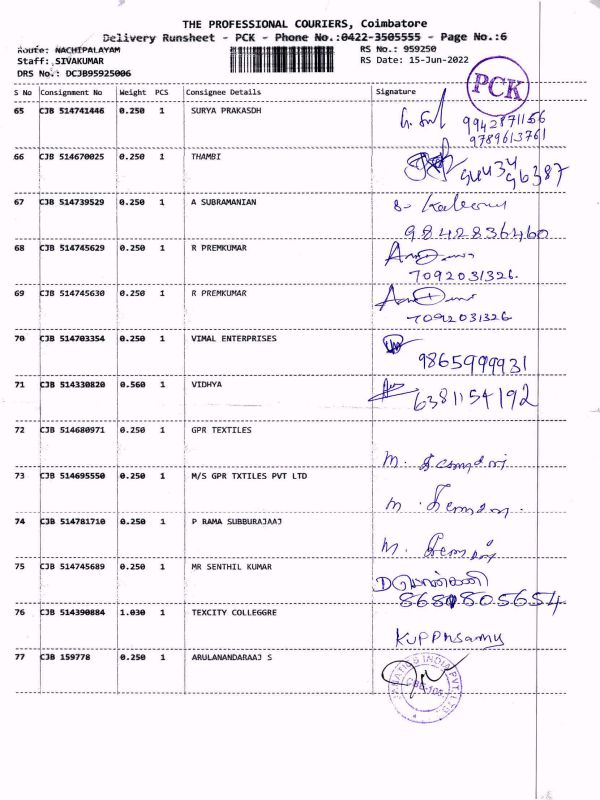 THE PROFESSIONAL COURIERS, Coimbatore
Delivery Runsheet - PCK - Phone No.:0422-3505555 - Page No.:6
Route: NACHIPALAYAM RS No.: 959250
Staff: SIVAKUMAR RS Date: 15-Jun-2022
DRS No.: DCJB95925006
PCK
S No Consignment No Weight PCS Consignee Details Signature
65 CJB 514741446 0.250 1 SURYA PRAKASDH
9942871156
9789613761
66 CJB 514670025 0.250 1 THAMBI
94434
96387
67 CJB 514739529 0.250 1 A SUBRAMANIAN
9842836460
68 CJB 514745629 0.250 1 R PREMKUMAR
7092031326
69 CJB 514745630 0.250 1 R PREMKUMAR
7092031326
70 CJB 514703354 0.250 1 VIMAL ENTERPRISES
9865999931
71 CJB 514330820 0.560 1 VIDHYA
6381154192
72 CJB 514680971 0.250 1 GPR TEXTILES
M.
73 CJB 514695550 0.250 1 M/S GPR TXTILES PVT LTD
M.
74 CJB 514781710 0.250 1 P RAMA SUBBURAJAAJ
M.
75 CJB 514745689 0.250 1 MR SENTHIL KUMAR
76 CJB 514390884 1.030 1 TEXCITY COLLEGGRE
Kuppusamy
77 CJB 159778 0.250 1 ARULANANDARAAJ S
INDIA PVT. LTD